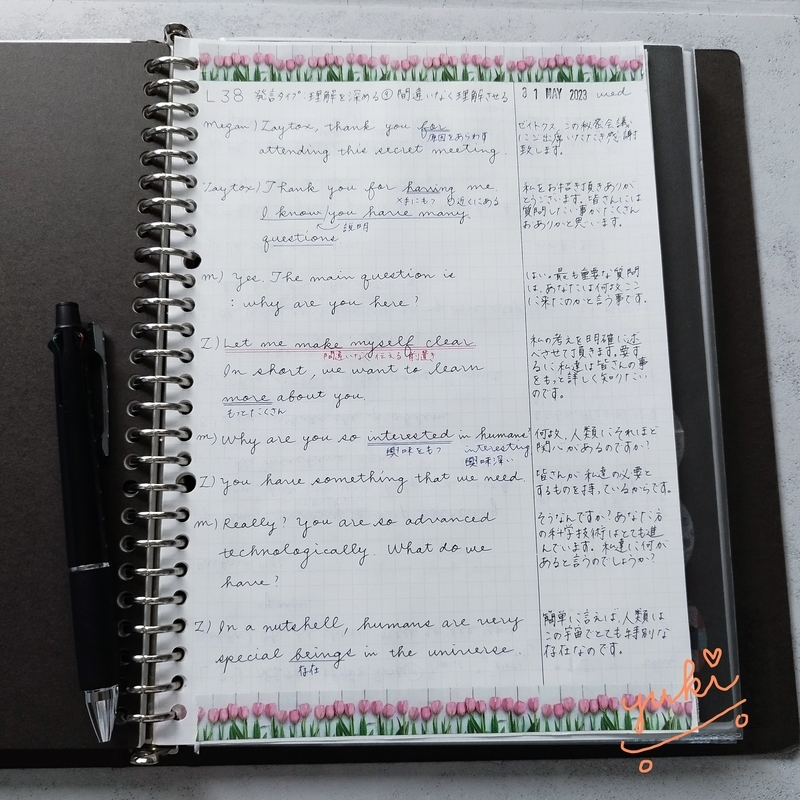 L38 発言タイプ:理解を深める④ 間違いなく理解させる
31 MAY 2023 wed
Megan) Zaytox, thank you for
原因をあらわす
attending this secret meeting.
ゼイトクス、この秘密会議
にご出席いただき感謝
致します。
Zaytox) Thank you for having me.
×手にもつ ○近くにある
I know/you have many
説明
questions
私をお招き頂きありが
とうございます。皆さんには
質問したい事がたくさん
おありかと思います。
m) Yes. The main question is
: why are you here?
はい。最も重要な質問
は、あなたは何故ここ
に来たのかと言う事です。
Z) Let me make myself clear
間違いなく伝える前置き
In short, we want to learn
more about you.
もっとたくさん
私の考えを明確に述
べさせて頂きます。要す
るに、私達は皆さんの事
をもっと詳しく知りたい
のです。
m) Why are you so interested in humans?
興味をもつ
interesting
興味深い
何故、人類にそれほど
関心があるのですか?
Z) You have something that we need.
皆さんが私達の必要と
するものを持っているからです。
m) Really? You are so advanced
technologically. What do we
have?
そうなんですか?あなた方
の科学技術はとても進
んでいます。私達に何が
あると言うのでしょうか?
Z) In a nutshell, humans are very
special beings in the universe.
存在
簡単に言えば、人類は
この宇宙でとても特別な
存在なのです。
yuki